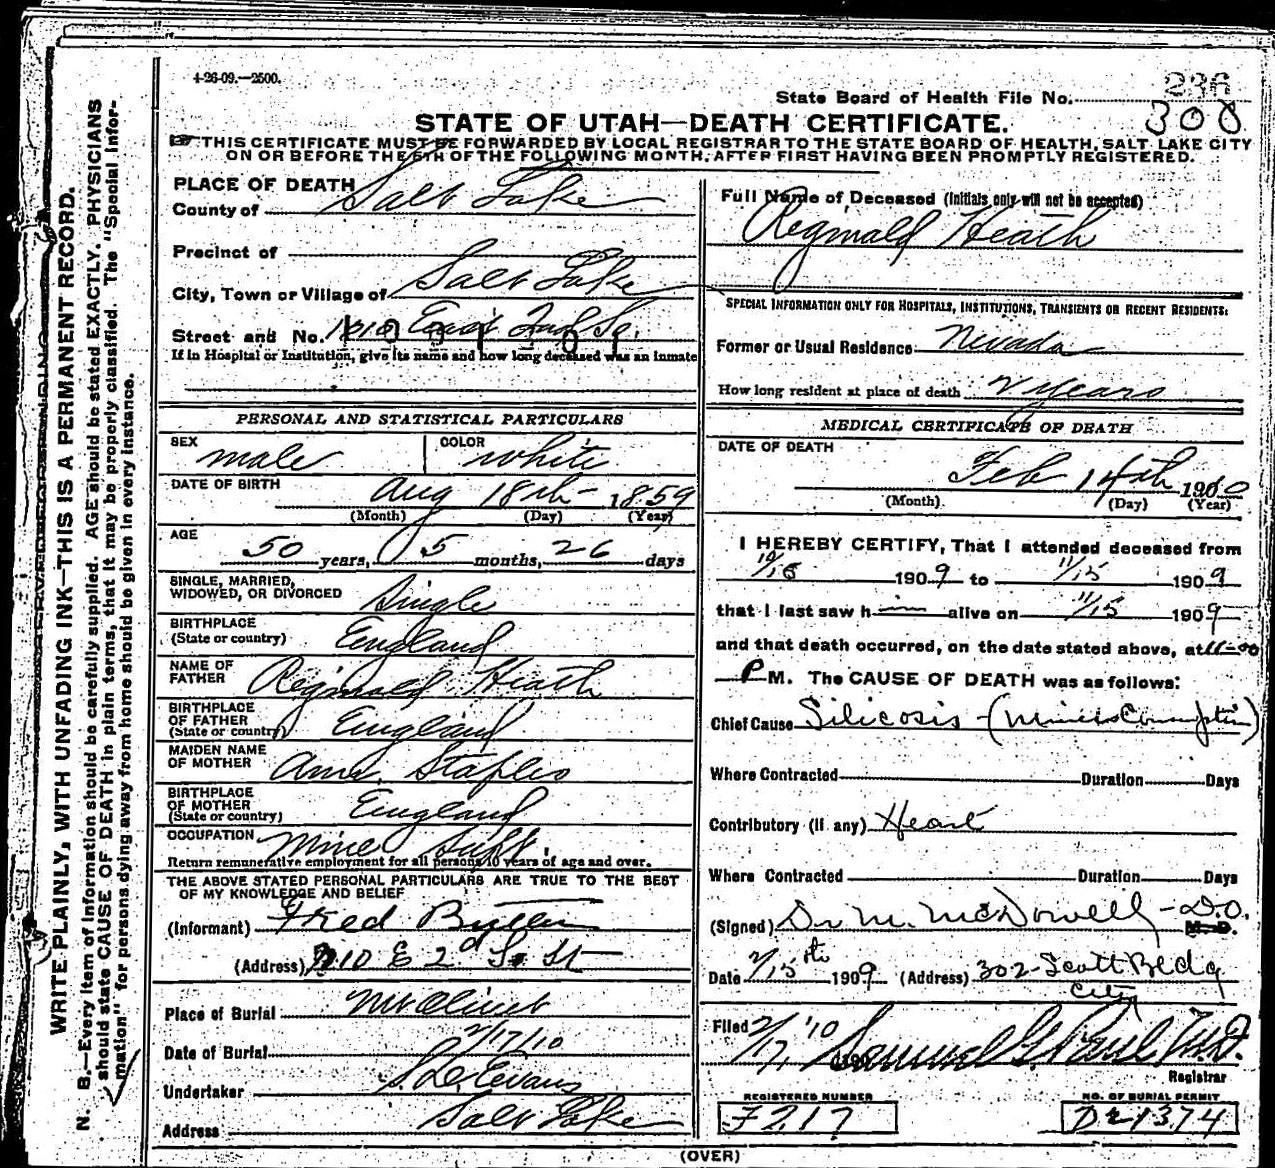 4-26-09.—2500.
236
State Board of Health File No. 308
STATE OF UTAH—DEATH CERTIFICATE.
THIS CERTIFICATE MUST BE FORWARDED BY LOCAL REGISTRAR TO THE STATE BOARD OF HEALTH, SALT LAKE CITY
ON OR BEFORE THE 5TH OF THE FOLLOWING MONTH, AFTER FIRST HAVING BEEN PROMPTLY REGISTERED.
WRITE PLAINLY, WITH UNFADING INK—THIS IS A PERMANENT RECORD.
N. B.—Every item of information should be carefully supplied. AGE should be stated EXACTLY. PHYSICIANS
should state CAUSE OF DEATH in plain terms, that it may be properly classified. The "Special Infor-
mation" for persons dying away from home should be given in every instance.
PLACE OF DEATH
County of Salt Lake
Precinct of
City, Town or Village of Salt Lake
Street and No. 1010 East 2nd So.
If in Hospital or Institution, give its name and how long deceased was an inmate
PERSONAL AND STATISTICAL PARTICULARS
SEX male COLOR white
DATE OF BIRTH Aug 18th 1859
(Month) (Day) (Year)
AGE 50 years, 5 months, 26 days
SINGLE, MARRIED,
WIDOWED, OR DIVORCED Single
BIRTHPLACE
(State or country) England
NAME OF
FATHER Reginald Heath
BIRTHPLACE
OF FATHER
(State or country) England
MAIDEN NAME
OF MOTHER Ann Staples
BIRTHPLACE
OF MOTHER
(State or country) England
OCCUPATION Mine Supt.
Return remunerative employment for all persons 10 years of age and over.
THE ABOVE STATED PERSONAL PARTICULARS ARE TRUE TO THE BEST
OF MY KNOWLEDGE AND BELIEF
(Informant) Fred
(Address) 1010 E 2d So St
Place of Burial Mt Olivet
Date of Burial 2/17/10
Undertaker S. D. Evans
Address Salt Lake
Full Name of Deceased (Initials only will not be accepted)
Reginald Heath
SPECIAL INFORMATION ONLY FOR HOSPITALS, INSTITUTIONS, TRANSIENTS OR RECENT RESIDENTS:
Former or Usual Residence Nevada
How long resident at place of death 2 years
MEDICAL CERTIFICATE OF DEATH
DATE OF DEATH
Feb 14th 1910
(Month) (Day) (Year)
I HEREBY CERTIFY, That I attended deceased from
10/18 1909 to 11/15 1909
that I last saw him alive on 11/15 1909
and that death occurred, on the date stated above, at 11-00
P M. The CAUSE OF DEATH was as follows:
Chief Cause Silicosis - (Miners Consumption)
Where Contracted Duration Days
Contributory (if any) Heart
Where Contracted Duration Days
(Signed) Dr M. McDowell - D.O.
M. D.
Date 2/15th 1909 (Address) 302 Scott Bldg
City
Filed 2/17 '10 Samuel G. Paul M.D.
190
Registrar
REGISTERED NUMBER
F217
NO. OF BURIAL PERMIT
D21374
(OVER)